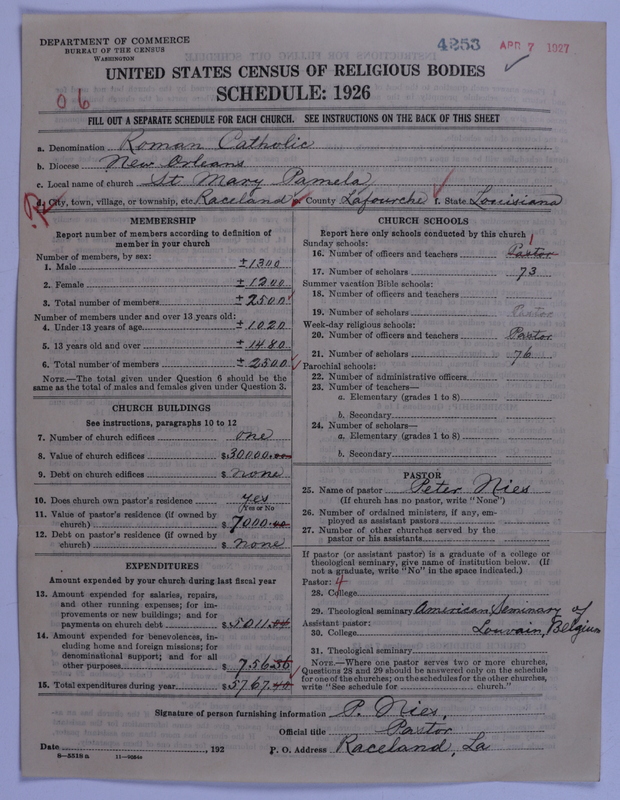 DEPARTMENT OF COMMERCE
BUREAU OF THE CENSUS
WASHINGTON
4253 APR 7 1927
UNITED STATES CENSUS OF RELIGIOUS BODIES
SCHEDULE: 1926
06
FILL OUT A SEPARATE SCHEDULE FOR EACH CHURCH. SEE INSTRUCTIONS ON THE BACK OF THIS SHEET
a. Denomination Roman Catholic
b. Diocese New Orleans
c. Local name of church St Mary Pamela
d. City, town, village, or township, etc. Raceland e. County Lafourche f. State Louisiana
R
MEMBERSHIP
Report number of members according to definition of member in your church
Number of members, by sex:
1. Male ±1300
2. Female ±1200
3. Total number of members ±2500
Number of members under and over 13 years old:
4. Under 13 years of age ±1020
5. 13 years old and over ±1480
6. Total number of members ±2500
NOTE.—The total given under Question 6 should be the
same as the total of males and females given under Question 3.
CHURCH BUILDINGS
See instructions, paragraphs 10 to 12
7. Number of church edifices one
8. Value of church edifices $30000.00
9. Debt on church edifices $ none
10. Does church own pastor's residence yes
(Yes or No)
11. Value of pastor's residence (if owned by
church) $7000.00
12. Debt on pastor's residence (if owned by
church) $ none
EXPENDITURES
Amount expended by your church during last fiscal year
13. Amount expended for salaries, repairs,
and other running expenses; for im-
provements or new buildings; and for
payments on church debt $5011.
14. Amount expended for benevolences, in-
cluding home and foreign missions; for
denominational support; and for all
other purposes $756
15. Total expenditures during year $5767.
CHURCH SCHOOLS
Report here only schools conducted by this church
Sunday schools:
16. Number of officers and teachers Pastor 1
17. Number of scholars 73
Summer vacation Bible schools:
18. Number of officers and teachers
19. Number of scholars Pastor
Week-day religious schools:
20. Number of officers and teachers Pastor
21. Number of scholars 76
Parochial schools:
22. Number of administrative officers
23. Number of teachers—
a. Elementary (grades 1 to 8)
b. Secondary
24. Number of scholars—
a. Elementary (grades 1 to 8)
b. Secondary
PASTOR
25. Name of pastor Peter Nies
(If church has no pastor, write "None")
26. Number of ordained ministers, if any, em-
ployed as assistant pastors
27. Number of other churches served by the
pastor or his assistants
If pastor (or assistant pastor) is a graduate of a college or
theological seminary, give name of institution below. (If
not a graduate, write "No" in the space indicated.)
Pastor: 4
28. College
29. Theological seminary American Seminary of
Assistant pastor:
30. College Louvain, Belgium
31. Theological seminary
NOTE.—Where one pastor serves two or more churches,
Questions 28 and 29 should be answered only on the schedule
for one of the churches; on the schedules for the other churches,
write "See schedule for church."
Signature of person furnishing information P. Nies,
Official title Pastor
Date , 192 P. O. Address Raceland, La
8—5518a 11—9084a